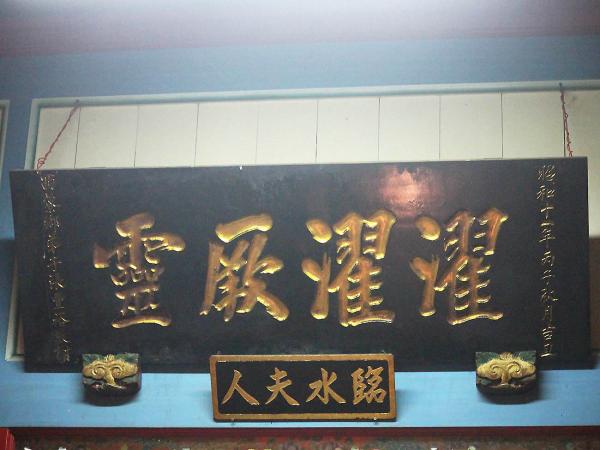 昭和十一年丙子秋月吉立
濯濯厥靈
臨水夫人